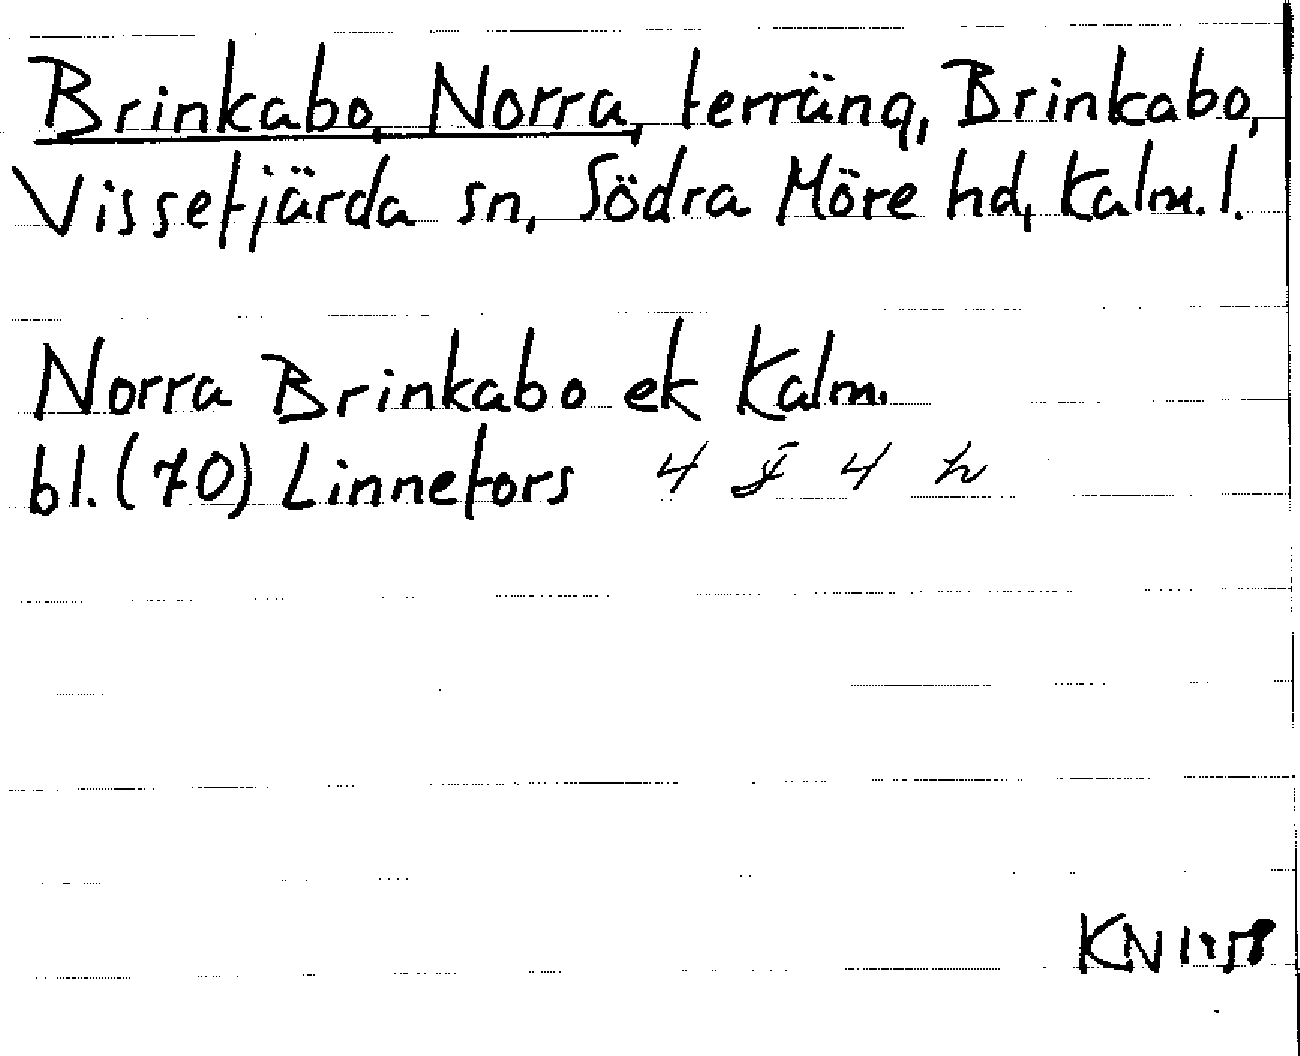 Brinkabo, Norra, terräng, Brinkabo,
Vissefjärda sn, Södra Möre hd, Kalm. l.
Norra Brinkabo ek Kalm.
bl. (70) Linnefors 4 F 4 h